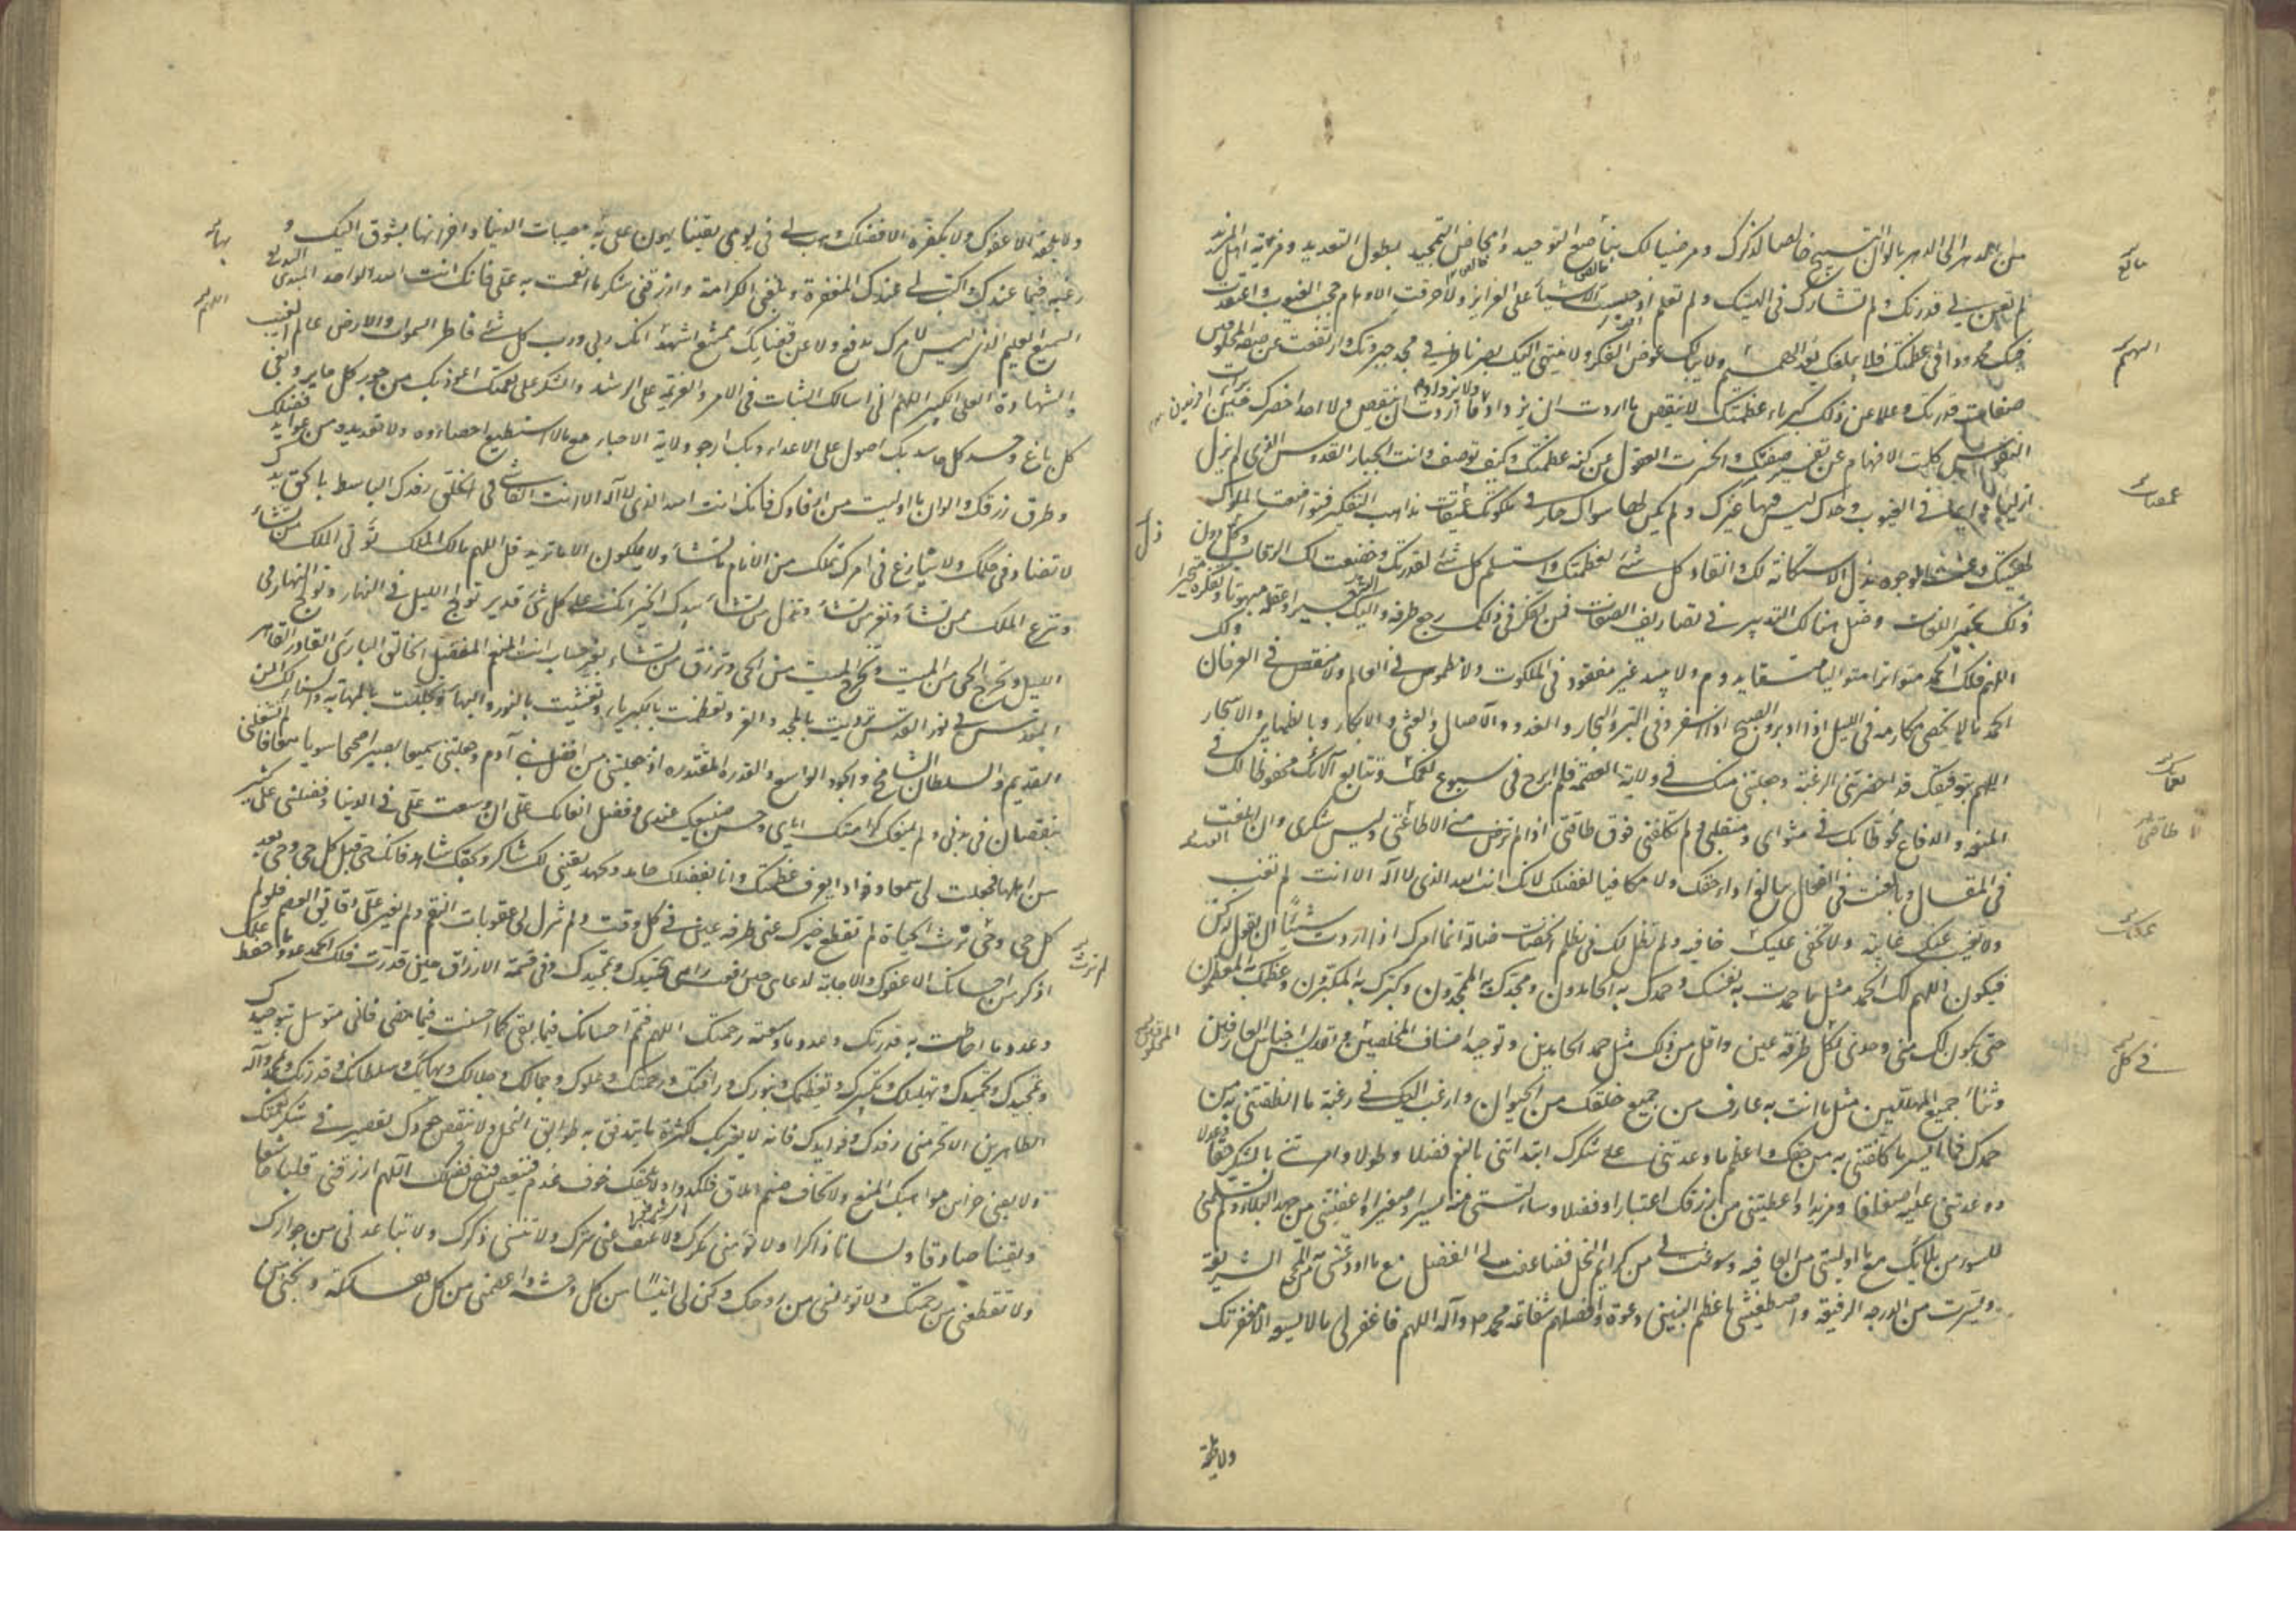 من الدهر الى الدهر بالوان التسبيح خالصا لذكرك ومرضيا لك بناصع التوحيد وامحاض التمجيد بطول التعديد ومزية اهل المزيد
لم تعن في قدرتك ولم تشارك في الهيتك ولم تعلم اذ حبست الاشياء على الغرايز ولا خرقت الاوهام حجب الغيوب فاعتقدت
منك محدودا في عظمتك فلا يبلغك بعد الهمم ولا ينالك غوص الفكر ولا ينتهى اليك بصر ناظر في مجد جبروتك وارتفعت عن صفة المخلوقين
صفات قدرتك وعلا عن ذلك كبرياء عظمتك لا ينقص ما اردت ان يزداد ولا يزداد ما اردت ان ينقص ولا احد احضرك حين برات
النفوس كلت الافهام عن تفسير صفتك وانحسرت العقول عن كنه عظمتك وكيف توصف وانت الجبار القدوس الذى لم يزل
ازليا دايما في الغيوب وحدك ليس فيها غيرك ولم يكن لها سواك حارت في ملكوتك عميقات مذاهب التفكير فتواضعت الملوك
لهيبتك وعنت الوجوه بذل الاستكانة لك وانقاد كل شئ لعظمتك واستسلم كل شئ لقدرتك وخضعت لك الرقاب وكل دون
ذلك تحبير اللغات وضل هنالك التدبير في تصاريف الصفات فمن تفكر في ذلك رجع طرفه اليك حسيرا وعقله مبهوتا وتفكره متحيرا
اللهم فلك الحمد متواترا متواليا متسقا يدوم ولا يبيد غير مفقود في الملكوت ولا مطموس في العالم ولا منتقص في العرفان
الحمد ما لا تحصى مكارمه في الليل اذا ادبر والصبح اذا اسفر وفي البر والبحار والغدو والآصال والعشى والابكار وبالظهاير والاسحار
اللهم بتوفيقك قد احضرتنى الرغبة وجعلتنى منك في ولاية العصمة فلم ابرح في سبوغ نعمك وتتابع آلائك محفوظا لك في
المنعة والدفاع محوطا بك في مثواى ومنقلبى ولم تكلفنى فوق طاقتى اذ لم ترض منى الا طاعتى وليس شكرى وان ابلغت
في المقال وبالغت في الفعال ببالغ اداء حقك ولا مكافيا لفضلك لانك انت الله الذى لا اله الا انت لم تغب
ولا تغيب عنك غايبة ولا تخفى عليك خافية ولم تضل لك في ظلم الخفيات ضالة انما امرك اذا اردت شيئا ان تقول له كن
فيكون اللهم لك الحمد مثل ما حمدت به نفسك وحمدك به الحامدون ومجدك به الممجدون وكبرك به المكبرون وعظمك به المعظمون
حتى يكون لك منى وحدى لكل طرفة عين واقل من ذلك مثل حمد الحامدين وتوحيد اصناف المخلصين وتقديس اجناس العارفين
وثناء جميع المهللين ومثل ما انت به عارف من جميع خلقك من الحيوان وارغب اليك في رغبة ما انطقتنى به من
حمدك فما ايسر ما كلفتنى به من حقك واعظم ما وعدتنى على شكرك ابتدأتنى بالنعم فضلا وطولا وامرتنى بالشكر حقا وعدلا
ووعدتنى عليه اضعافا ومزيدا واعطيتنى من رزقك اعتبارا وفضلا وسالتنى منه يسيرا صغيرا واعفيتنى من جهد البلاء ولم تسلمنى
للسوء من بلائك مع ما اوليتنى من العافية وسوغت لى من كرايم النحل فضاعفت لى الفضل مع ما اودعتنى من المحجة الشريفة
ويسرت من الدرجة الرفيعة واصطفيتنى باعظم النبيين دعوة وافضلهم شفاعة محمد ص وآله اللهم فاغفر لى ما لا يسعه الا مغفرتك
مانع
اللهم
عميقات
نعمائك
الا طاقتى
عنك
في كل
ولا يمحقه
ولا يمحقه الا عفوك ولا يكفره الا فضلك وهب لى في يومى يقينا يهون على به مصيبات الدنيا واحزانها بشوق اليك و
رغبة فيما عندك واكتب لى عندك المغفرة وبلغنى الكرامة وارزقنى شكر ما انعمت به على فانك انت الله الواحد المبدئ
السميع العليم الذى ليس لامرك مدفع ولا عن قضائك ممتنع اشهد انك ربى ورب كل شئ فاطر السموات والارض عالم الغيب
والشهادة العلى الكبير اللهم انى اسالك الثبات في الامر والعزيمة على الرشد والشكر على نعمتك اعوذ بك من جور كل جاير وبغى
كل باغ وحسد كل حاسد بك اصول على الاعداء وبك ارجو ولاية الاحباء مع ما لا استطيع احصاءه ولا تعديده من عوايد فضلك
وطرف رزقك والوان ما اوليت من ارفادك فانك انت الله الذى لا اله الا انت الفاشى في الخلق رفدك الباسط بالحق يدك
لا تضاد في حكمك ولا تنازع في امرك تملك من الانام ما تشاء ولا يملكون الا ما تريد قل اللهم مالك الملك تؤتى الملك من تشاء
وتنزع الملك ممن تشاء وتعز من تشاء وتذل من تشاء بيدك الخير انك على كل شئ قدير تولج الليل في النهار وتولج النهار في
الليل وتخرج الحى من الميت وتخرج الميت من الحى وترزق من تشاء بغير حساب انت المنعم المفضل الخالق البارئ القادر القاهر
المقدس في نور القدس ترديت بالمجد والعز وتعظمت بالكبرياء وتغشيت بالنور والبهاء وتجللت بالمهابة والسناء لك المن
القديم والسلطان الشامخ والجود الواسع والقدرة المقتدرة اذ جعلتنى من افضل بنى آدم وجعلتنى سميعا بصيرا صحيحا سويا معافا لم تشغلنى
بنقصان في بدنى ولم يمنعك كرامتك اياى وحسن صنيعك عندى وفضل انعامك على ان وسعت على في الدنيا وفضلتنى على كثير
من اهلها فجعلت لى سمعا وفؤادا يعرف عظمتك وانا بفضلك حامد وبجهد يقينى لك شاكر وبحقك شاهد فانك حى قبل كل حى وحى بعد
كل حى وحى ترث الحياة لم تقطع خيرك عنى طرفة عين في كل وقت ولم تنزل لى عقوبات النقم ولم تغير على دقايق العصم فلو لم
اذكر من احسانك الا عفوك والاجابة لدعائى حين رفعت راسى بتحميدك وتمجيدك وفى قسمة الارزاق حين قدرت فلك الحمد عدد ما حفظ علمك
وعدد ما احاطت به قدرتك وعدد ما وسعته رحمتك اللهم فتمم احسانك فيما بقى كما احسنت فيما مضى فانى متوسل بتوحيدك
وتمجيدك وتحميدك وتهليلك وتكبيرك وتعظيمك وبنورك ورافتك ورحمتك وعلوك وجمالك وجلالك وبهائك وسلطانك وقدرتك وبمحمد وآله
الطاهرين الا تحرمنى رفدك وفوايدك فانه لا يعتريك لكثرة ما يتدفق به عوايق البخل ولا ينقص جودك تقصير في شكر نعمتك
ولا يفنى خزاين مواهبك المنع ولا تخاف ضيم املاق فتكدى ولا يلحقك خوف عدم فينقص فيض فضلك اللهم ارزقنى قلبا خاشعا
ويقينا صادقا ولسانا ذاكرا ولا تؤمنى مكرك ولا تكشف عنى سترك ولا تنسنى ذكرك ولا تباعدنى من جوارك
ولا تقطعنى من رحمتك ولا تؤيسنى من روحك وكن لى انيسا من كل وحشة واعصمنى من كل هلكة ونجنى من
بهائه
اللهم
لم ترث